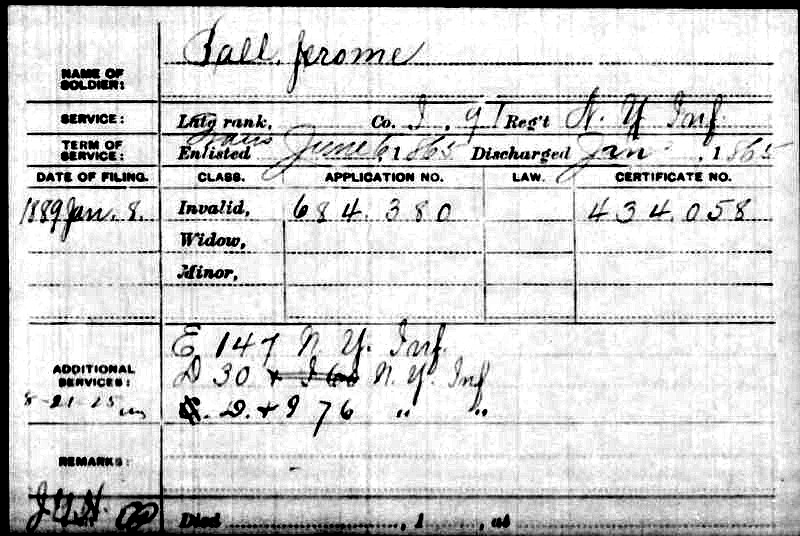 Ball, Jerome
NAME OF SOLDIER:
SERVICE: Late rank, Co. I, 91 Reg't N. Y. Inf.
TERM OF SERVICE: Trans Enlisted June 6, 1865 Discharged Jan , 1865
DATE OF FILING. CLASS. APPLICATION NO. LAW. CERTIFICATE NO.
1889 Jan. 8. Invalid, 684.380 434.058
Widow,
Minor,
E 147 N. Y. Inf.
ADDITIONAL SERVICES: D 30 N. Y. Inf
8-21-25 D. + I 76 " "
REMARKS:
Died , 1 , at